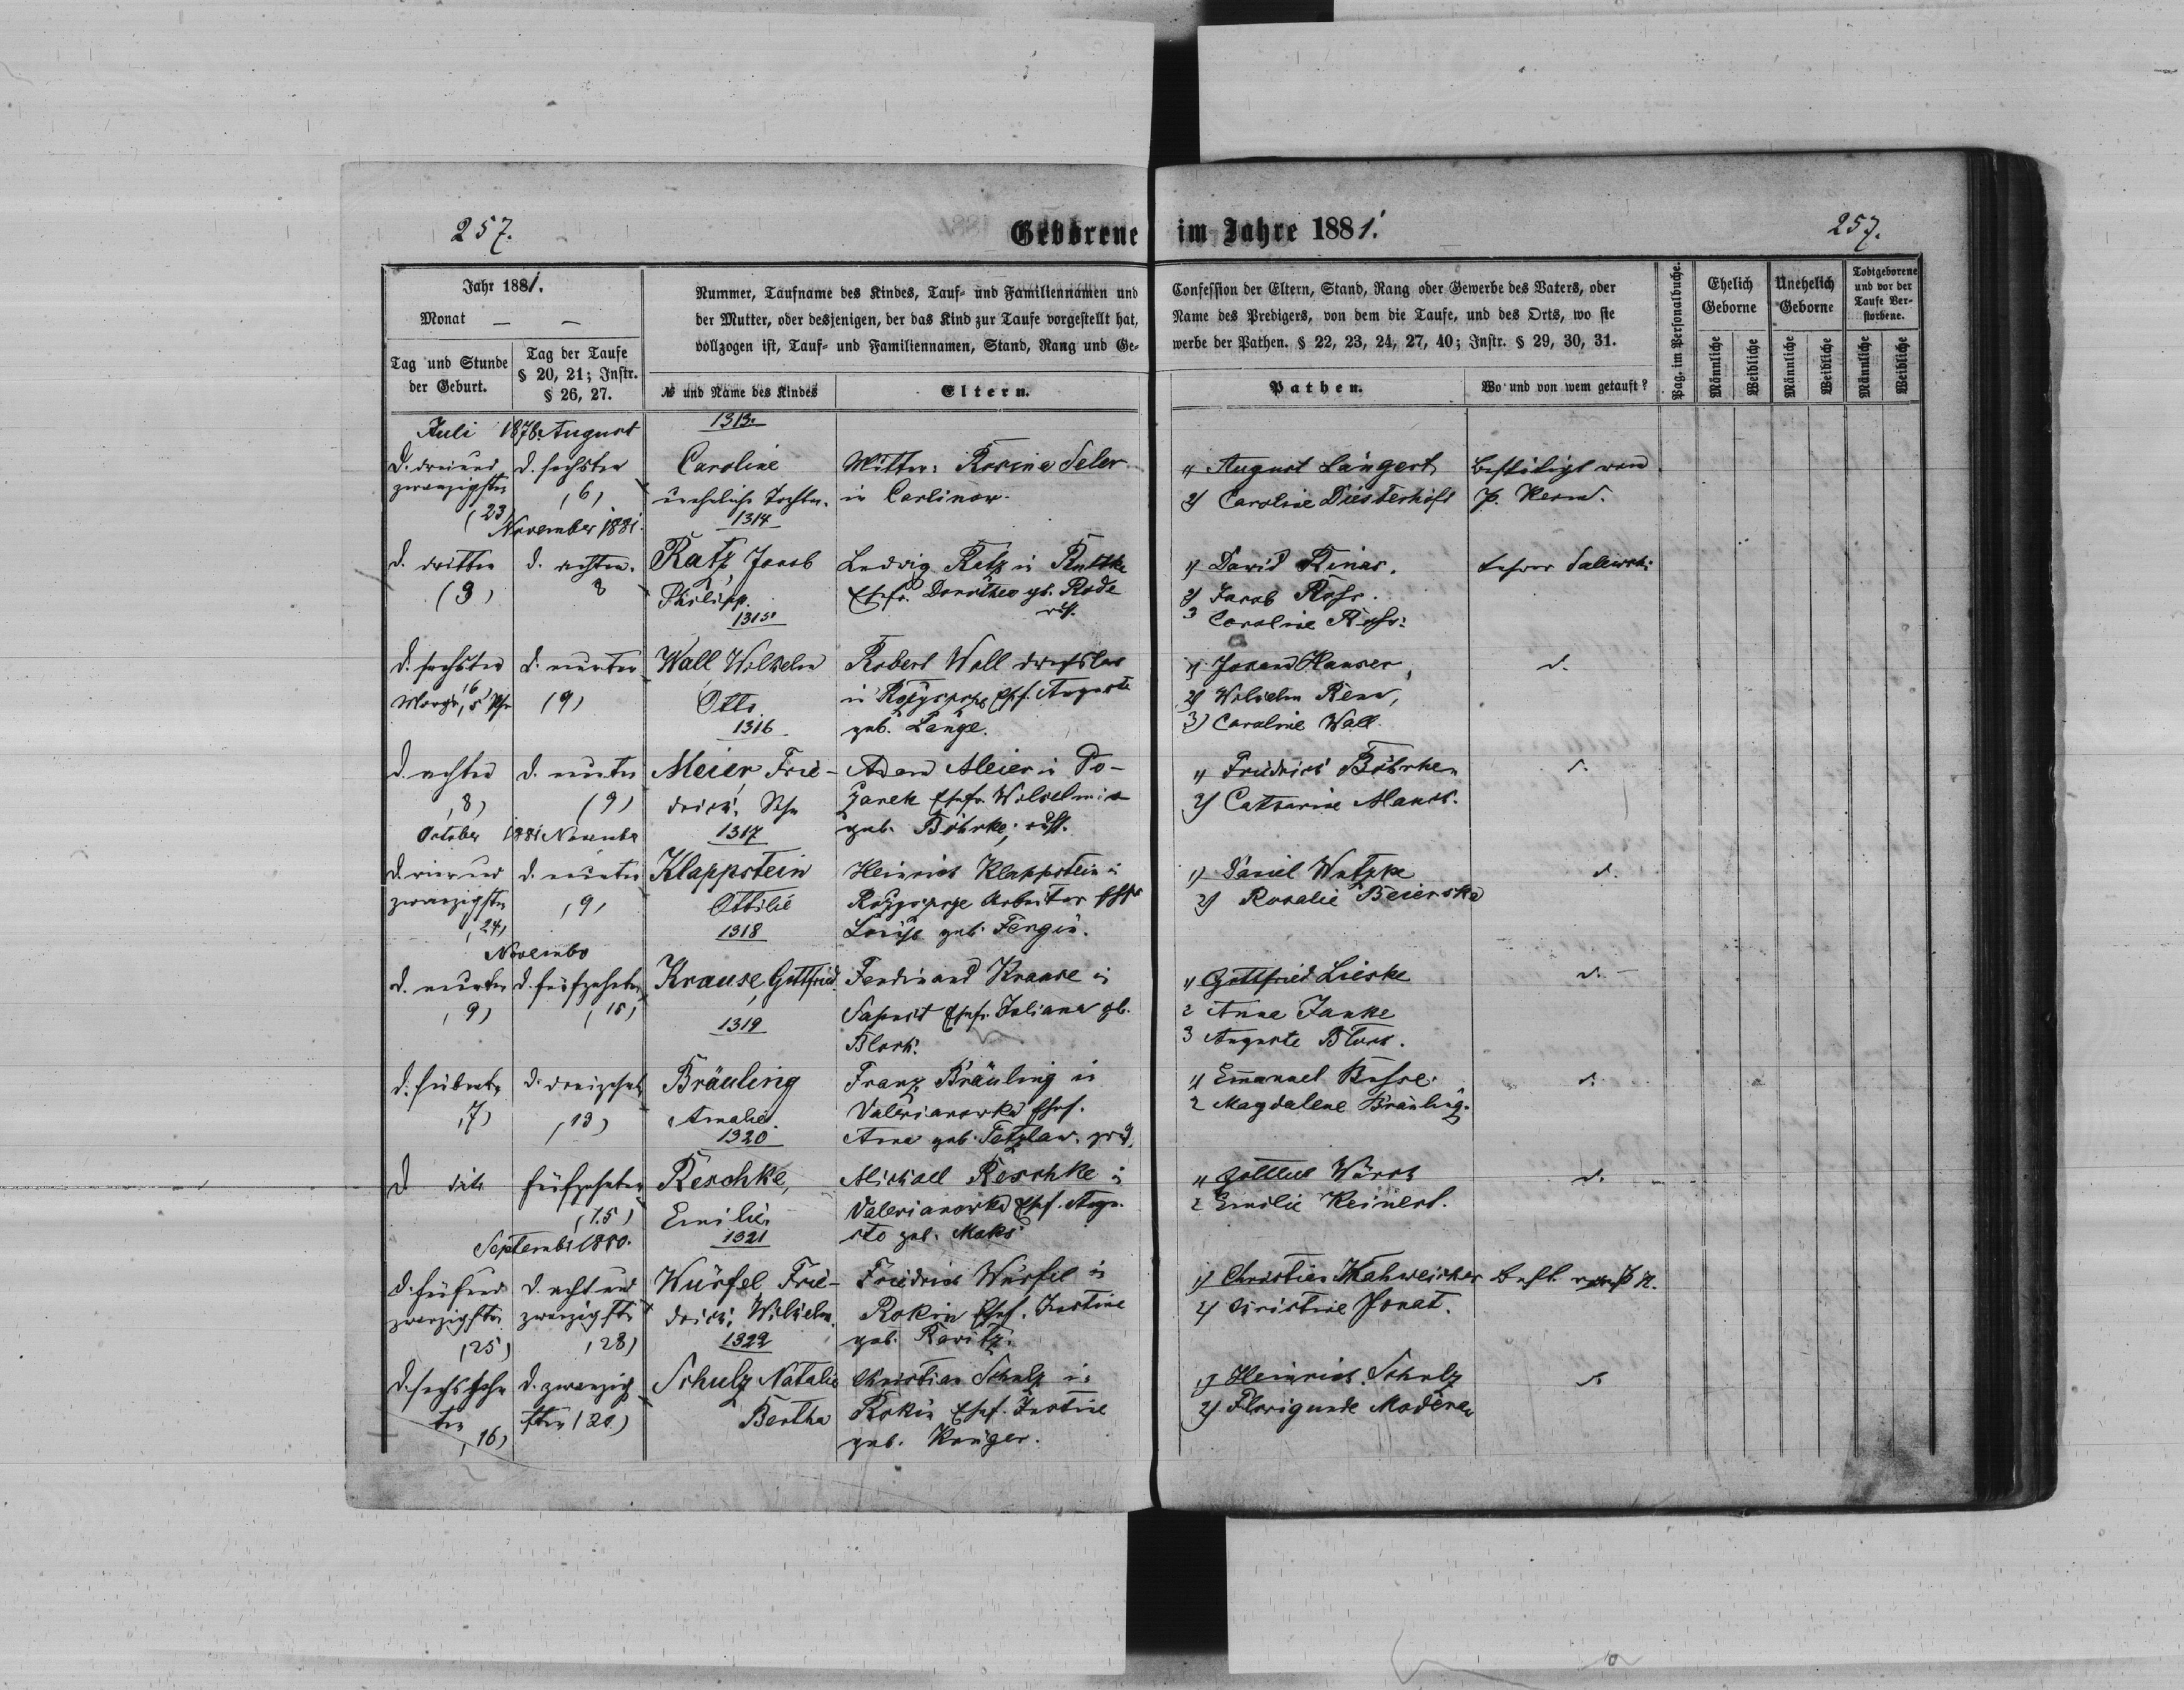 257.
Geborene im Jahre 1881.
257.
Jahr 1881.
Monat — —
Tag und Stunde der Geburt.
Tag der Taufe § 20, 21; Instr. § 26, 27.
Nummer, Taufname des Kindes, Tauf- und Familiennamen und
der Mutter, oder desjenigen, der das Kind zur Taufe vorgestellt hat,
vollzogen ist, Tauf- und Familiennamen, Stand, Rang und Ge-
№ und Name des Kindes
Eltern.
Confession der Eltern, Stand, Rang oder Gewerbe des Vaters, oder
Name des Predigers, von dem die Taufe, und des Orts, wo sie
werbe der Pathen. § 22, 23, 24, 27, 40; Instr. § 29, 30, 31.
Pathen.
Wo und von wem getauft?
Pag. im Personalbuche.
Ehelich Geborne
Unehelich Geborne
Todtgeborene und vor der Taufe Verstorbene.
Männliche
Weibliche
Männliche
Weibliche
Männliche
Weibliche
Juli 1878. August
1313.
D. dreiund d. sechsten Caroline Mutter: Rosine Seler 1) August Längert Bestätigt von
zwanzigsten (6) uneheliche Tochter. in Carlinow. 2) Caroline Diesterhöft P.
(23)
November 1881.
1314
d. dritten d. achten. Ratz, Jacob Ludwig Ratz in 1) David Rinas. Lehrer Salewski
(3) 8 Philipp. Ehefr. Dorothea gb. Rode 2) Jacob Ross.
1315
3 Caroline Ross.
d. sechsten d. neunten Wall Wilhelm Robert Wall 1) Johann Hauser, d.
Morgen, 5 Uhr (9) Otto in Ehf. Auguste 2) Wilhelm
1316 geb. Lange. 3) Caroline Wall
d. achten d. neunten Meier, Frie- Adam Meier in Do- 1) Friedrich Böhrke d.
(8) (9) drich, Ehefr. Wilhelmine 2) Catharine
October 1881 November 1317 geb. Böhrke;
d. vierund d. neunten Klappstein Heinrich Klappstein in 1) Daniel Watzke d.
zwanzigsten (9) Ottilie Arbeiter 2) Rosalie Beierske
(24) 1318 Louise geb.
November
d. neunten d. fünfzehnten Krause, Gottfried. Ferdinand Krause in 1) Gottfried Lieske d.
(9) (15) Ehefr. Juliana gb. 2 Anna Janke
1319 Block. 3 Auguste Block.
d. siebenten d. dreizehnten Bräuling Franz Bräuling in 1) Emanuel Busse. d.
(7) (13) Amalie. Valerianowka Ehef. 2 Magdalene Bräuling.
1320 Anna geb. Tetzlaw.
D dito fünfzehnten Reschke, Michael Reschke in 1) Gottlieb d.
(15) Emilie Valerianowka Ehef. Augu- 2 Emilie Reinert.
September 1880. 1321 ste geb. Maks
d. fünfund d. achtund Würfel, Frie- Friedrich Würfel in 1) Christian Best. von P.
zwanzigsten zwanzigsten drich, Wilhelm. Rokin Ehef. Justine 2) Christine Jonat.
(25) (28) 1322 geb. Rawitz.
d. sechszehn d. zwanzig Schulz Natalie Christian Schulz in 1) Heinrich Schulz d.
ten (16) sten (20) Bertha Rokin Ehef. Justine 2) Florigunde
geb. Krüger.